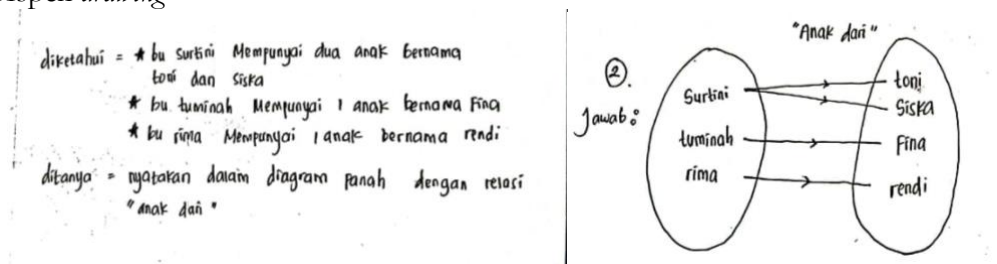 diketahui = * bu Surtini Mempunyai dua anak bernama
toni dan Siska
* bu tuminah Mempunyai 1 anak bernama Fina
* bu rima Mempunyai 1 anak bernama rendi
ditanya = nyatakan dalam diagram panah dengan relasi
"anak dari"
"Anak dari"
2.
Jawab :
Surtini
tuminah
rima
toni
Siska
Fina
rendi